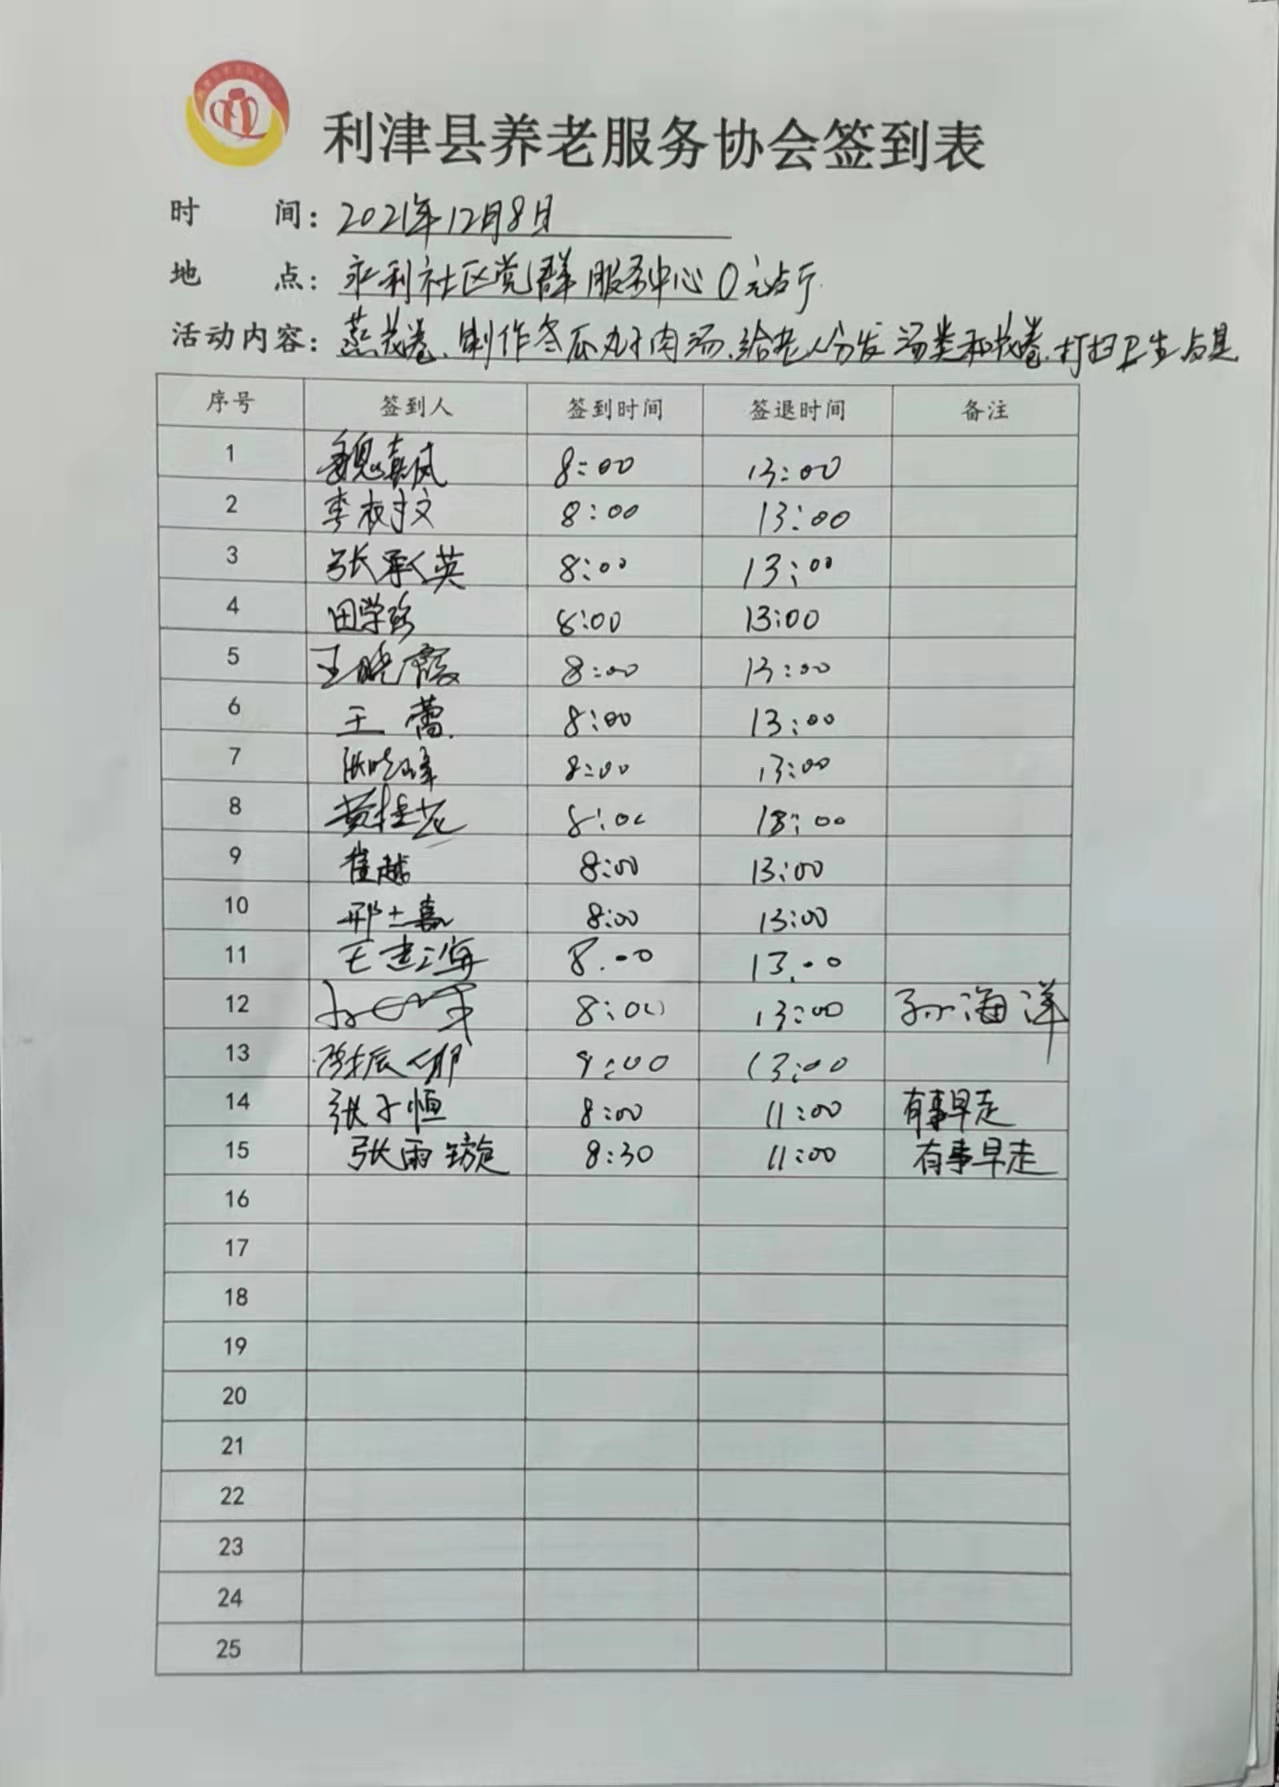 利津县养老服务协会签到表
时 间：2021年12月8日
地 点：永利社区党群服务中心0元点厅
活动内容：蒸花卷、制作冬瓜丸子肉汤、给老人分发汤类和花卷、打扫卫生
序号 签到人 签到时间 签退时间 备注
1 魏喜凤 8:00 13:00
2 李树文 8:00 13:00
3 张承英 8:00 13:00
4 田学珍 8:00 13:00
5 王晓霞 8:00 13:00
6 王蕾 8:00 13:00
7 8:00 13:00
8 黄桂花 8:00 13:00
9 崔越 8:00 13:00
10 邢士嘉 8:00 13:00
11 王志海 8:00 13:00
12 8:00 13:00 孙海洋
13 9:00 13:00
14 张子恒 8:00 11:00 有事早走
15 张雨镟 8:30 11:00 有事早走
16
17
18
19
20
21
22
23
24
25